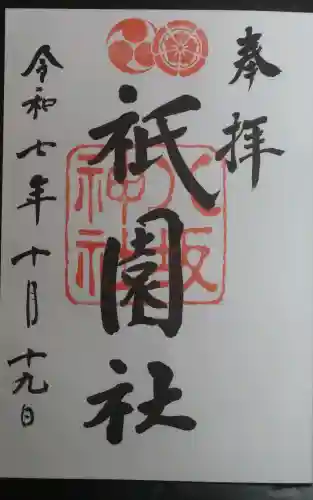 奉拝
八坂
神社
祇園社
令和七年十月十九日